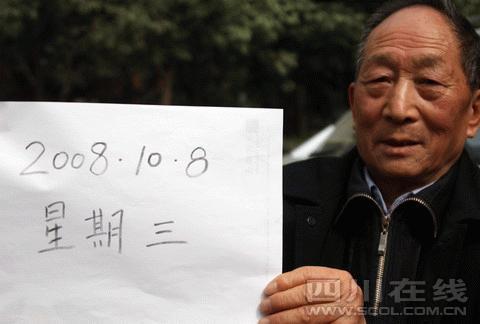 2008.10.8
星期三
四川在线
WWW.SCOL.COM.CN